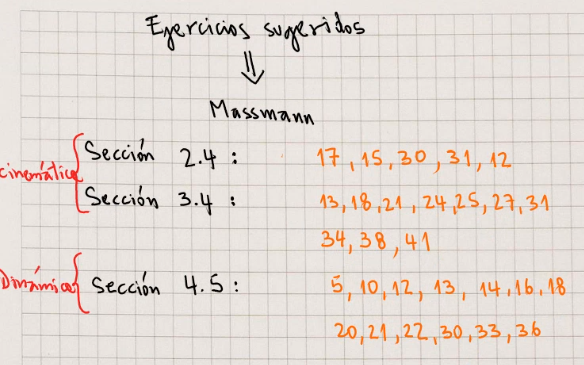 Ejercicios sugeridos
⇓
Massmann
cinemática { Sección 2.4 : 17, 15, 30, 31, 12
Sección 3.4 : 13, 18, 21, 24, 25, 27, 31
34, 38, 41
Dinámica { Sección 4.5 : 5, 10, 12, 13, 14, 16, 18
20, 21, 22, 30, 33, 36